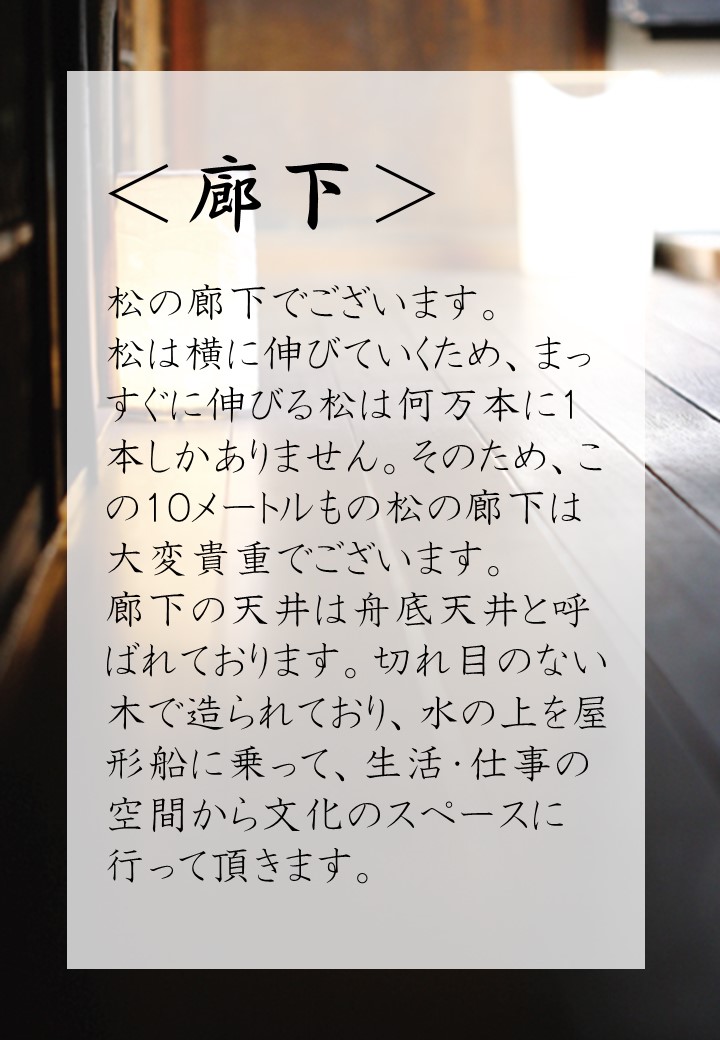 ＜廊下＞
松の廊下でございます。
松は横に伸びていくため、まっ
すぐに伸びる松は何万本に1
本しかありません。そのため、こ
の10メートルもの松の廊下は
大変貴重でございます。
廊下の天井は舟底天井と呼
ばれております。切れ目のない
木で造られており、水の上を屋
形船に乗って、生活・仕事の
空間から文化のスペースに
行って頂きます。